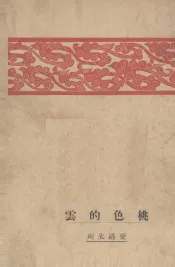 桃色的雲
愛羅先珂